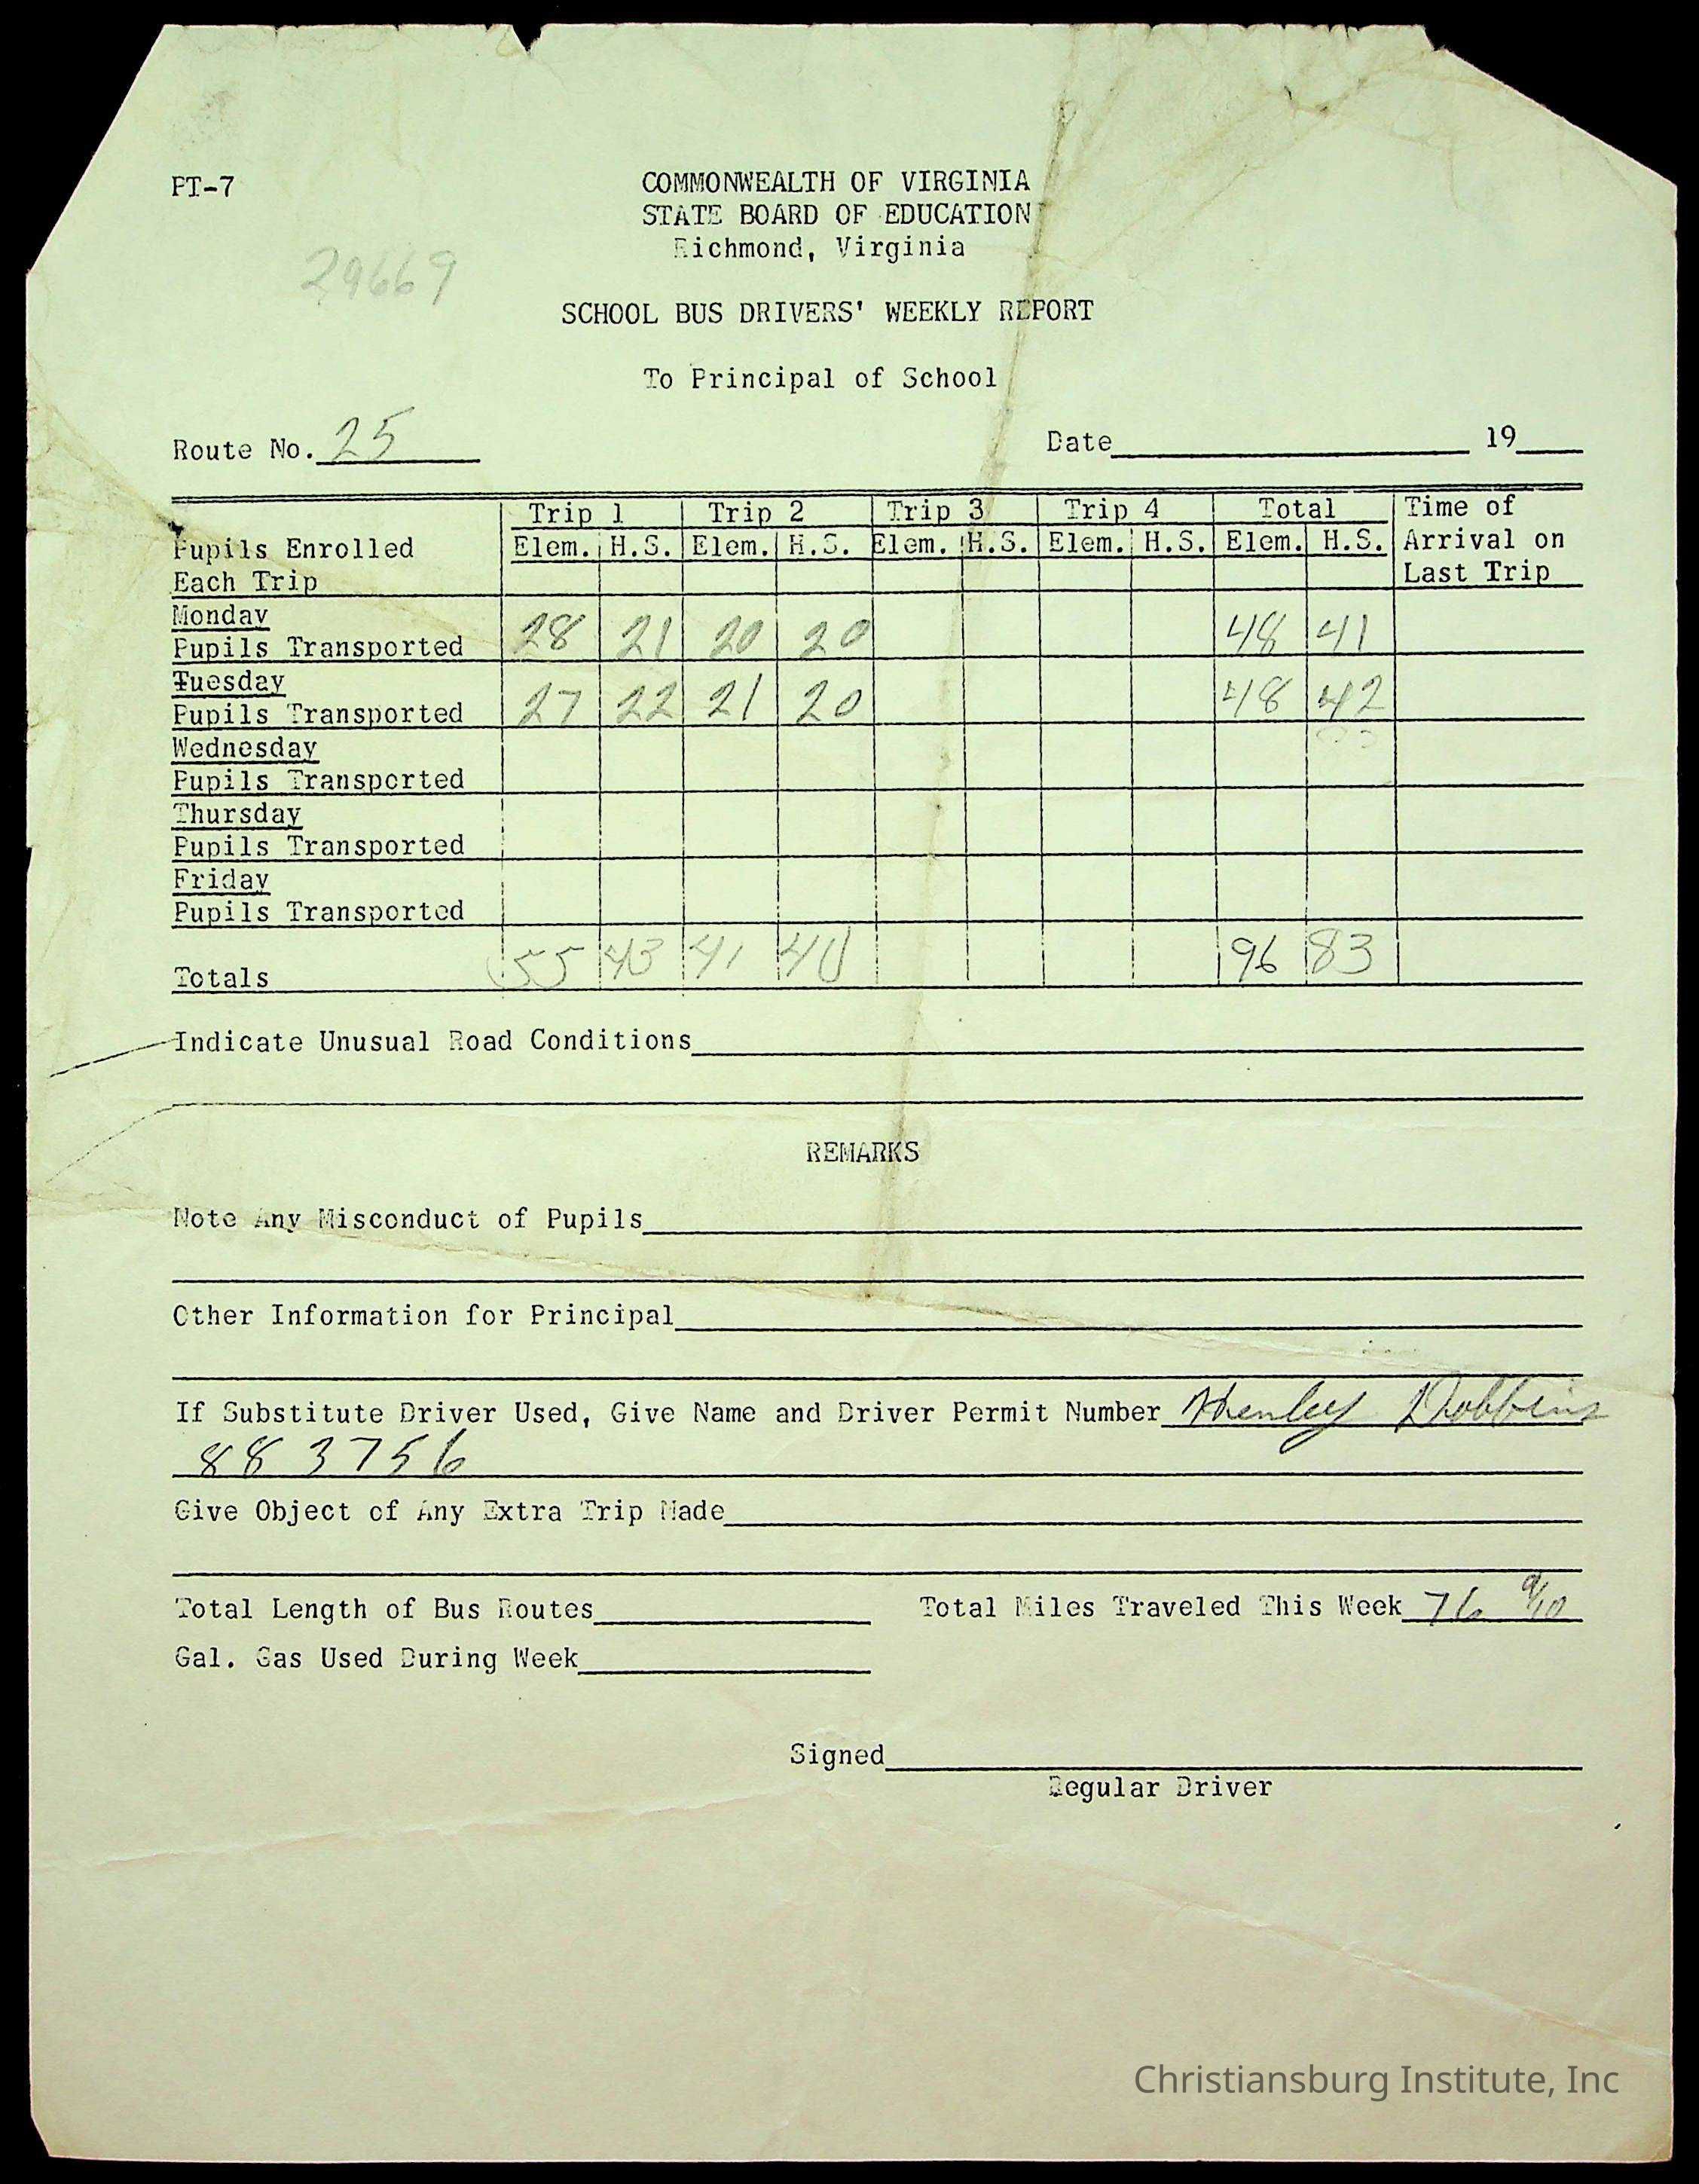 PT-7
COMMONWEALTH OF VIRGINIA
STATE BOARD OF EDUCATION
Richmond, Virginia
29669
SCHOOL BUS DRIVERS' WEEKLY REPORT
To Principal of School
Route No. 25 Date 19
Trip 1 Trip 2 Trip 3 Trip 4 Total Time of
Pupils Enrolled Elem. H.S. Elem. H.S. Elem. H.S. Elem. H.S. Elem. H.S. Arrival on
Each Trip Last Trip
Monday
Pupils Transported 28 21 20 20 48 41
Tuesday
Pupils Transported 27 22 21 20 48 42
Wednesday
Pupils Transported
Thursday
Pupils Transported
Friday
Pupils Transported
Totals 55 43 41 40 96 83
Indicate Unusual Road Conditions
REMARKS
Note Any Misconduct of Pupils
Other Information for Principal
If Substitute Driver Used, Give Name and Driver Permit Number Henley Dobbins
883756
Give Object of Any Extra Trip Made
Total Length of Bus Routes Total Miles Traveled This Week 76 9/10
Gal. Gas Used During Week
Signed
Regular Driver
Christiansburg Institute, Inc